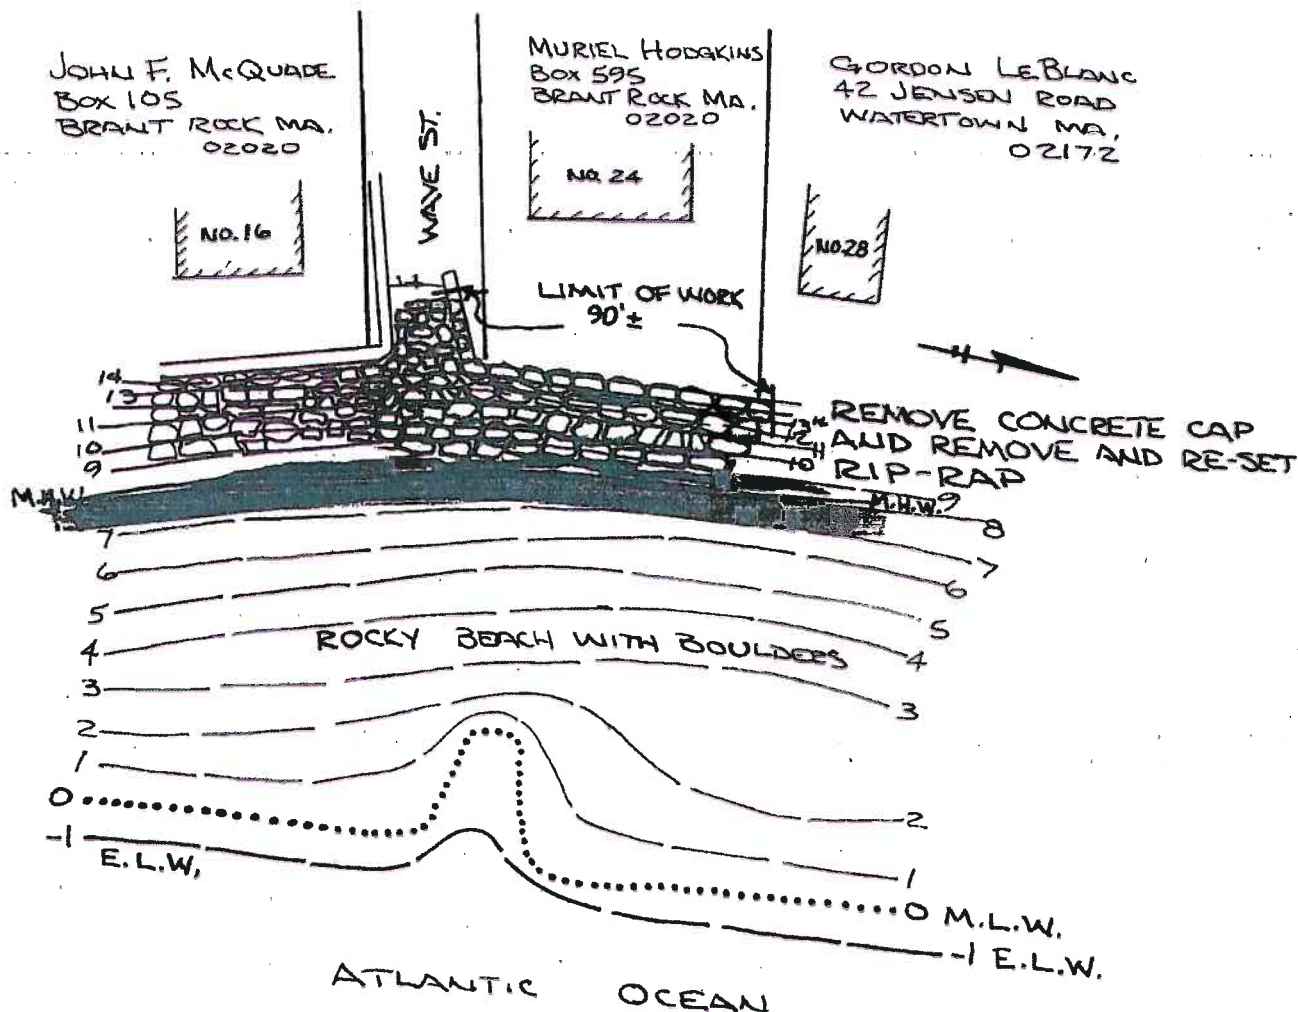 JOHN F. McQUADE
BOX 105
BRANT ROCK MA.
02020
WAVE ST.
MURIEL HODGKINS
BOX 595
BRANT ROCK MA.
02020
GORDON LEBLANC
42 JENSEN ROAD
WATERTOWN MA,
02172
NO. 16
NO. 24
NO. 28
LIMIT OF WORK
90'±
REMOVE CONCRETE CAP
AND REMOVE AND RE-SET
RIP-RAP
14
13
11
10
9
M.H.W.
7
6
5
4
3
2
1
0
-1
E.L.W,
12
11
10
M.H.W. 9
8
7
6
5
4
3
2
1
0 M.L.W.
-1 E.L.W.
ROCKY BEACH WITH BOULDERS
ATLANTIC OCEAN